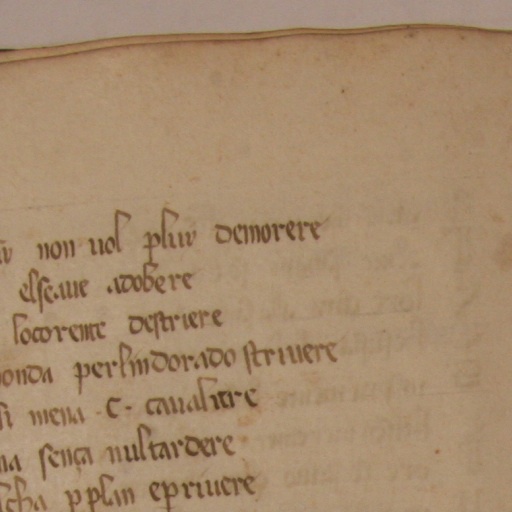 non uol pluu demorere
else aue adobere
locorente destriere
onda perlindorado striuere
si mena .C. caualere
na sença nul tardere
p plan e p riuere